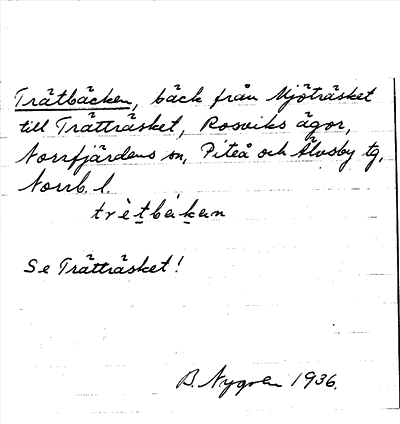 Trätbäcken, bäck från Mjöträsket
till Trätträsket, Rosviks ägor,
Norrfjärdens sn, Piteå och Älvsby tg,
Norrb. l.
trètbäkan
Se Trätträsket!
B. Nygren 1936.